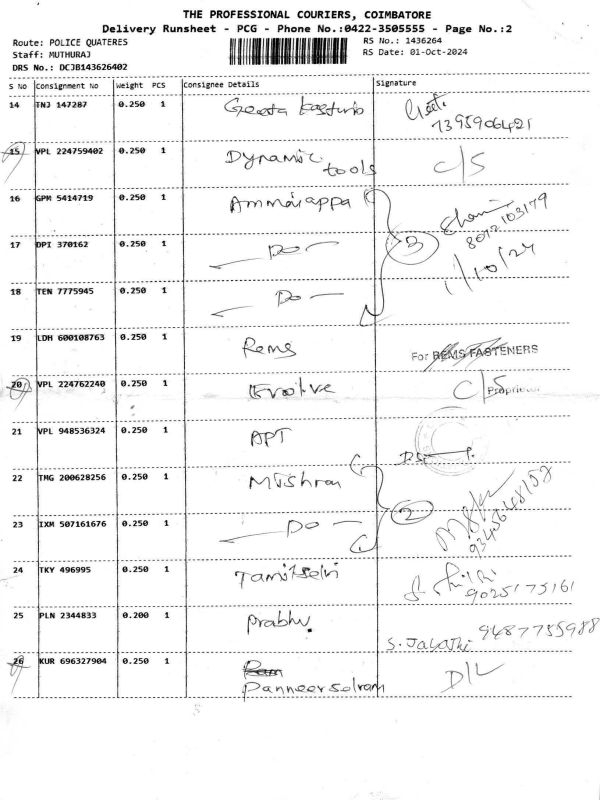 THE PROFESSIONAL COURIERS, COIMBATORE
Delivery Runsheet - PCG - Phone No.:0422-3505555 - Page No.:2
Route: POLICE QUATERES
RS No.: 1436264
Staff: MUTHURAJ
RS Date: 01-Oct-2024
DRS No.: DCJB143626402
S No Consignment No Weight PCS Consignee Details Signature
14 TNJ 147287 0.250 1 Geeta
7395906421
15 VPL 224759402 0.250 1 Dynamic tools C/S
16 GPM 5414719 0.250 1 Ammaiappa
3
8072103179
17 DPI 370162 0.250 1 Do
1/10/24
18 TEN 7775945 0.250 1 Do
19 LDH 600108763 0.250 1 Rems For REMS FASTENERS
20 VPL 224762240 0.250 1 Evolve C/S
Proprietor
21 VPL 948536324 0.250 1 APT
22 TMG 200628256 0.250 1
2
23 IXM 507161676 0.250 1 Do
9345648152
24 TKY 496995 0.250 1 Tamilselvi
9025175161
25 PLN 2344833 0.200 1 Prabhu.
S. Jayathi 9487755988
26 KUR 696327904 0.250 1 Panneerselvam D/L